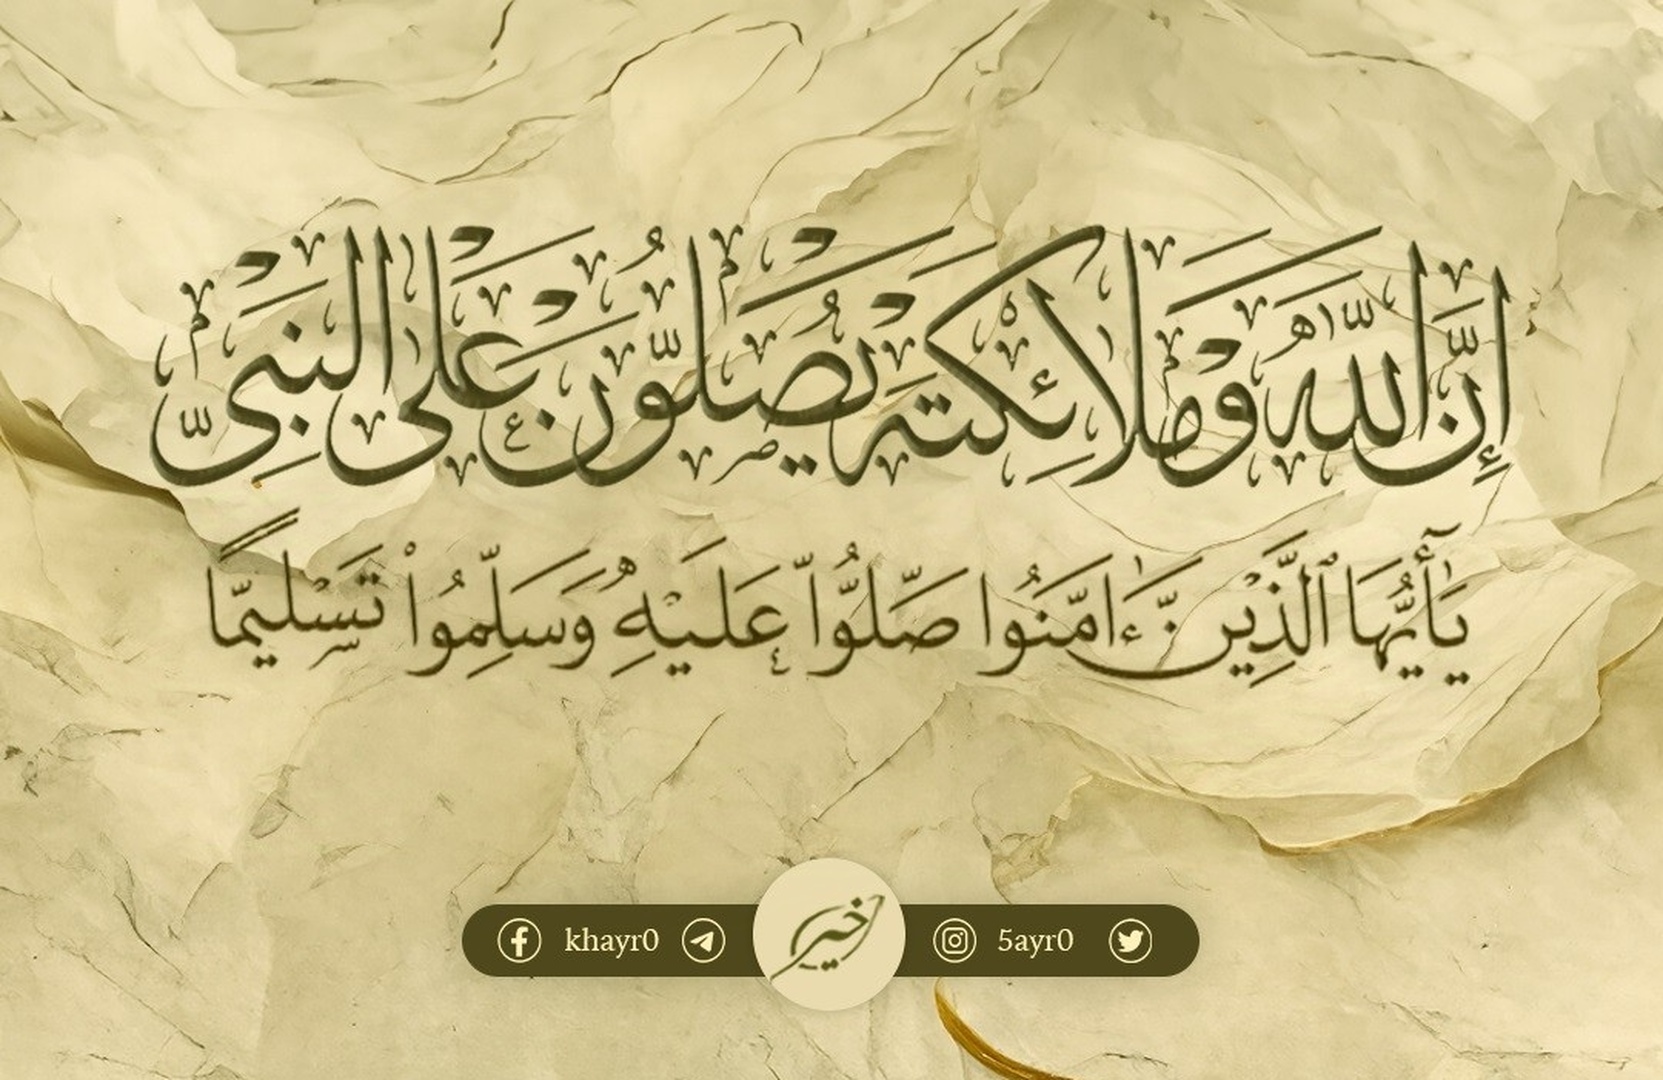 إِنَّ اللَّهَ وَمَلَائِكَتَهُ يُصَلُّونَ عَلَى النَّبِيِّ
يَٰٓأَيُّهَا ٱلَّذِينَ ءَامَنُوا صَلُّوا۟ عَلَيْهِ وَسَلِّمُوا۟ تَسْلِيمًا
khayr0 خير 5ayr0